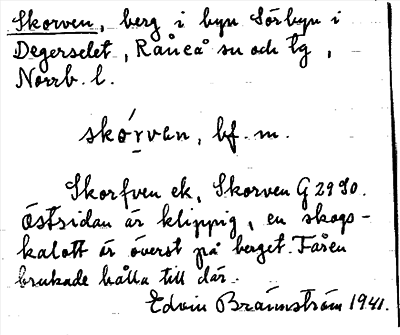 Skorven, berg i byn Sörbyn i
Degerselet, Råneå sn och tg,
Norrb. l.
skó̱rvən, bf. m.
Skorfven ek, Skorven G 2990.
Östsidan är klippig, en skogs-
kalott är överst på berget. Fåren
brukade hålla till där.
Edvin Brännström 1941.